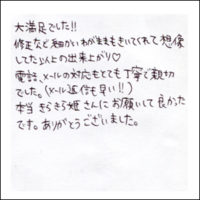 大満足でした!!
修正など細かいわがままもきいてくれて想像
してた以上の出来上がり♡
電話、メールの対応もとても丁寧で親切
でした。(メール返信も早い!!)
本当きらきら姫さんにお願いして良かった
です。ありがとうございました。